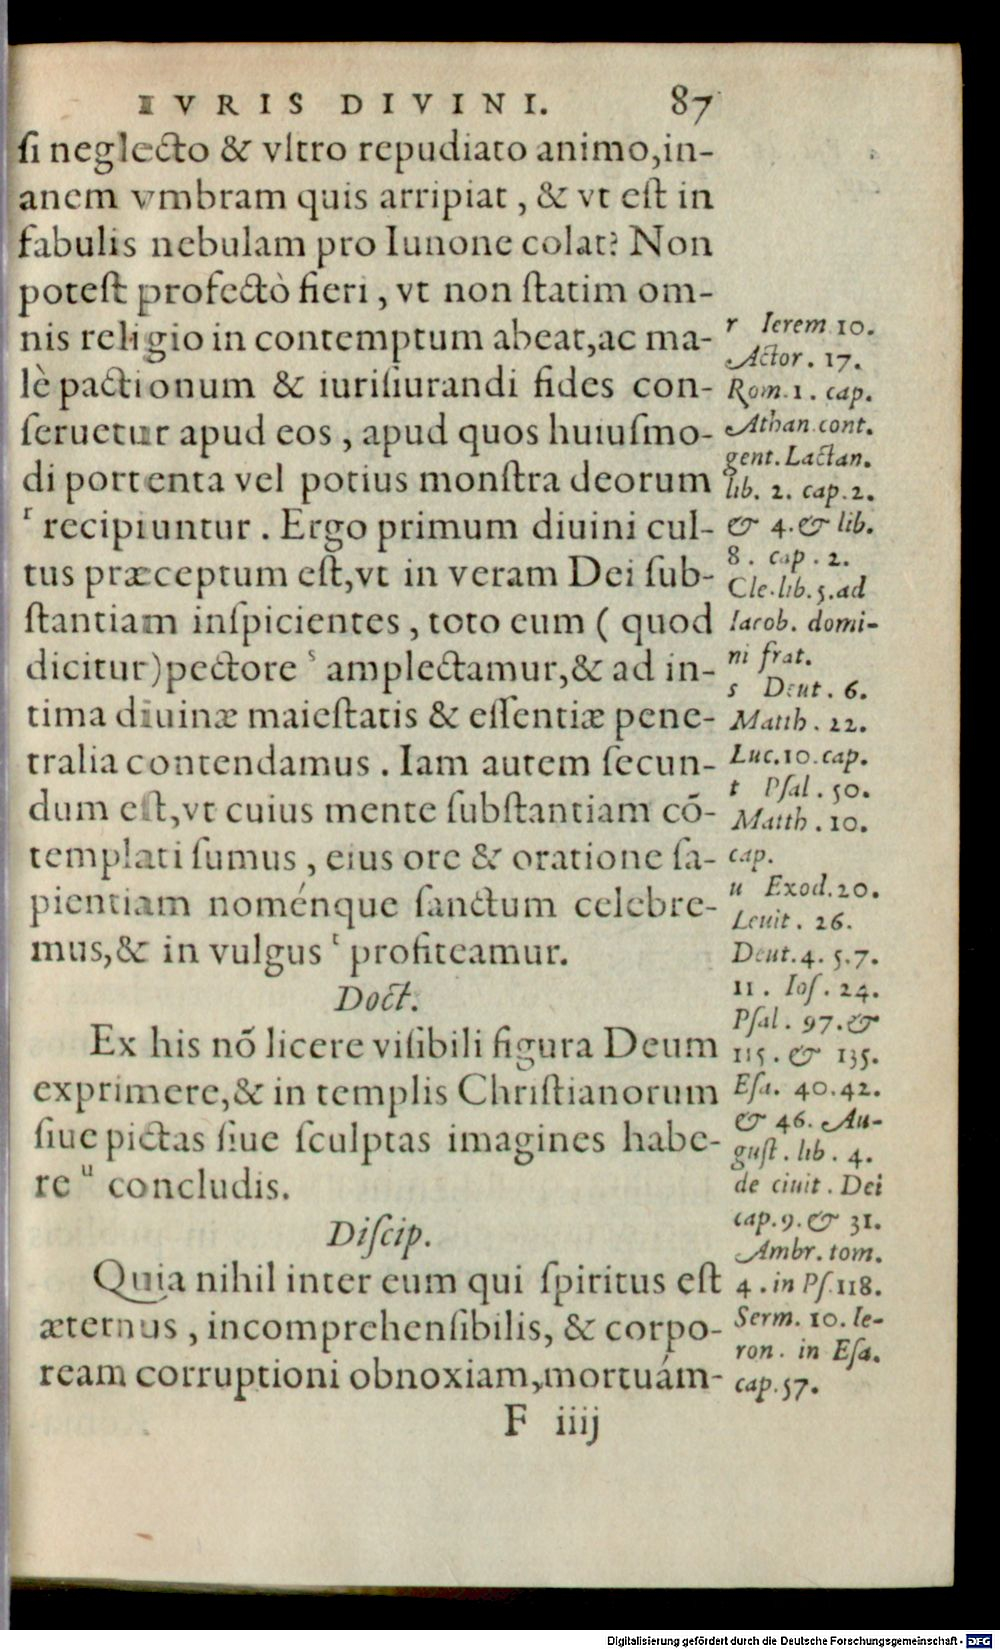 IVRIS DIVINI. 87
ſi neglecto & vltro repudiato animo, in-
anem vmbram quis arripiat, & vt eſt in
fabulis nebulam pro Iunone colat? Non
poteſt profectò fieri, vt non ſtatim om-
nis religio in contemptum abeat, ac ma-
lè pactionum & iuriſiurandi fides con-
ſeruetur apud eos, apud quos huiuſmo-
di portenta vel potius monſtra deorum
r recipiuntur. Ergo primum diuini cul-
tus præceptum eſt, vt in veram Dei ſub-
ſtantiam inſpicientes, toto eum (quod
dicitur) pectore s amplectamur, & ad in-
tima diuinæ maieſtatis & eſſentiæ pene-
tralia contendamus. Iam autem ſecun-
dum eſt, vt cuius mente ſubſtantiam cõ-
templati ſumus, eius ore & oratione ſa-
pientiam noménque ſanctum celebre-
mus, & in vulgus t profiteamur.
Doct.
Ex his nõ licere viſibili figura Deum
exprimere, & in templis Chriſtianorum
ſiue pictas ſiue ſculptas imagines habe-
re u concludis.
Diſcip.
Quia nihil inter eum qui ſpiritus eſt
æternus, incomprehenſibilis, & corpo-
ream corruptioni obnoxiam, mortuám-
F iiij
r Ierem 10.
Actor. 17.
Rom. 1. cap.
Athan. cont.
gent. Lactan.
lib. 2. cap. 2.
& 4. & lib.
8. cap. 2.
Cle. lib. 5. ad
Iacob. domi-
ni frat.
s Deut. 6.
Matth. 22.
Luc. 10. cap.
t Pſal. 50.
Matth. 10.
cap.
u Exod. 20.
Leuit. 26.
Deut. 4. 5. 7.
11. Ioſ. 24.
Pſal. 97. &
115. & 135.
Eſa. 40. 42.
& 46. Au-
guſt. lib. 4.
de ciuit. Dei
cap. 9. & 31.
Ambr. tom.
4. in Pſ. 118.
Serm. 10. Ie-
ron. in Eſa.
cap. 57.
Digitalisierung gefördert durch die Deutsche Forschungsgemeinschaft - DFG